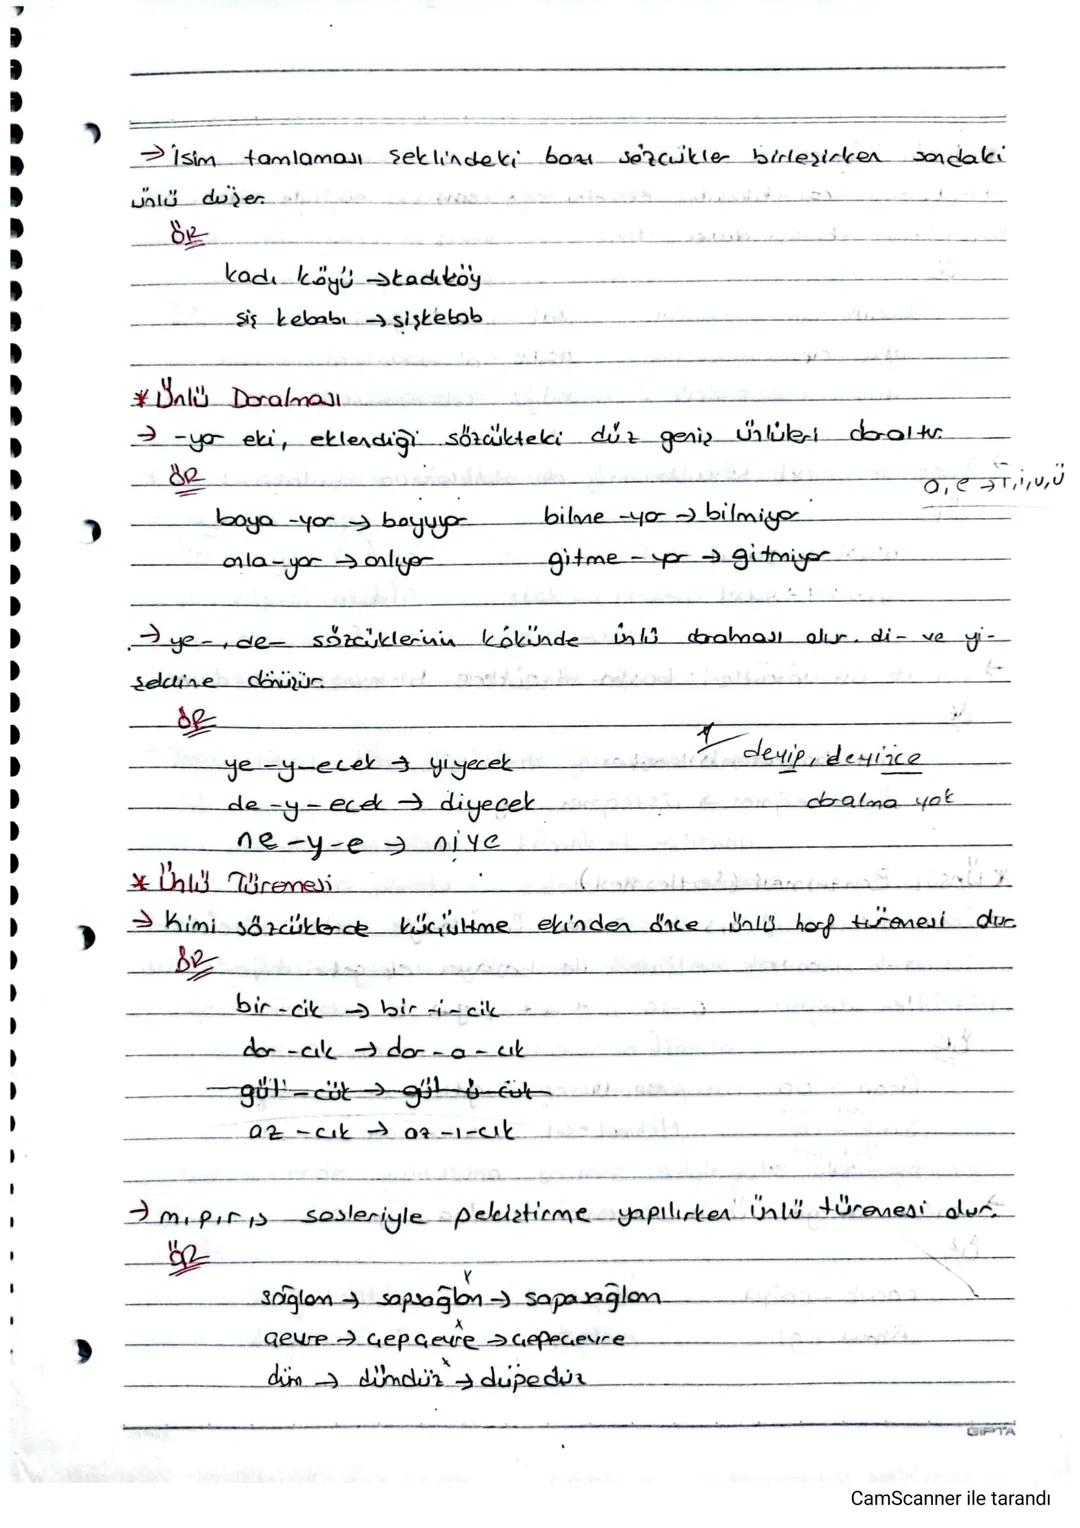 → isim tamlaması şeklindeki bazı sözcükler birleşirken sondaki
ünlü düşer.
ÖR
kadı köyü → kadıköy
şiş kebabı → şişkebab
* Ünlü Daralması
→ -yor eki, eklendiği sözcükteki düz geniş ünlüleri daraltır.
ÖR
a, e → ı, i, u, ü
boya -yor → boyuyor bilme -yor → bilmiyor
anla-yor → anlıyor gitme - yor → gitmiyor
→ ye-, de- sözcüklerinin kökünde ünlü daralması olur. di- ve yi-
şekline dönüşür.
ÖR
ye -y-ecek → yiyecek deyip, deyince
de -y- ecek → diyecek daralma yok
ne -y-e → niye
* Ünlü Türemesi
→ Kimi sözcüklerde küçültme ekinden önce ünlü harf türemesi olur.
ÖR
bir -cik → bir -i-cik
dar -cık → dar - a - cık
gül - cük → gül-ü-cük
az - cık → az -ı-cık
→ m, p, r, s sesleriyle pekiştirme yapılırken ünlü türemesi olur.
ÖR
sağlam → sapsağlam x → sapasağlam
çevre → çepçevre x → çepeçevre
düz → dümdüz x → düpedüz
GIPTA
CamScanner ile tarandı